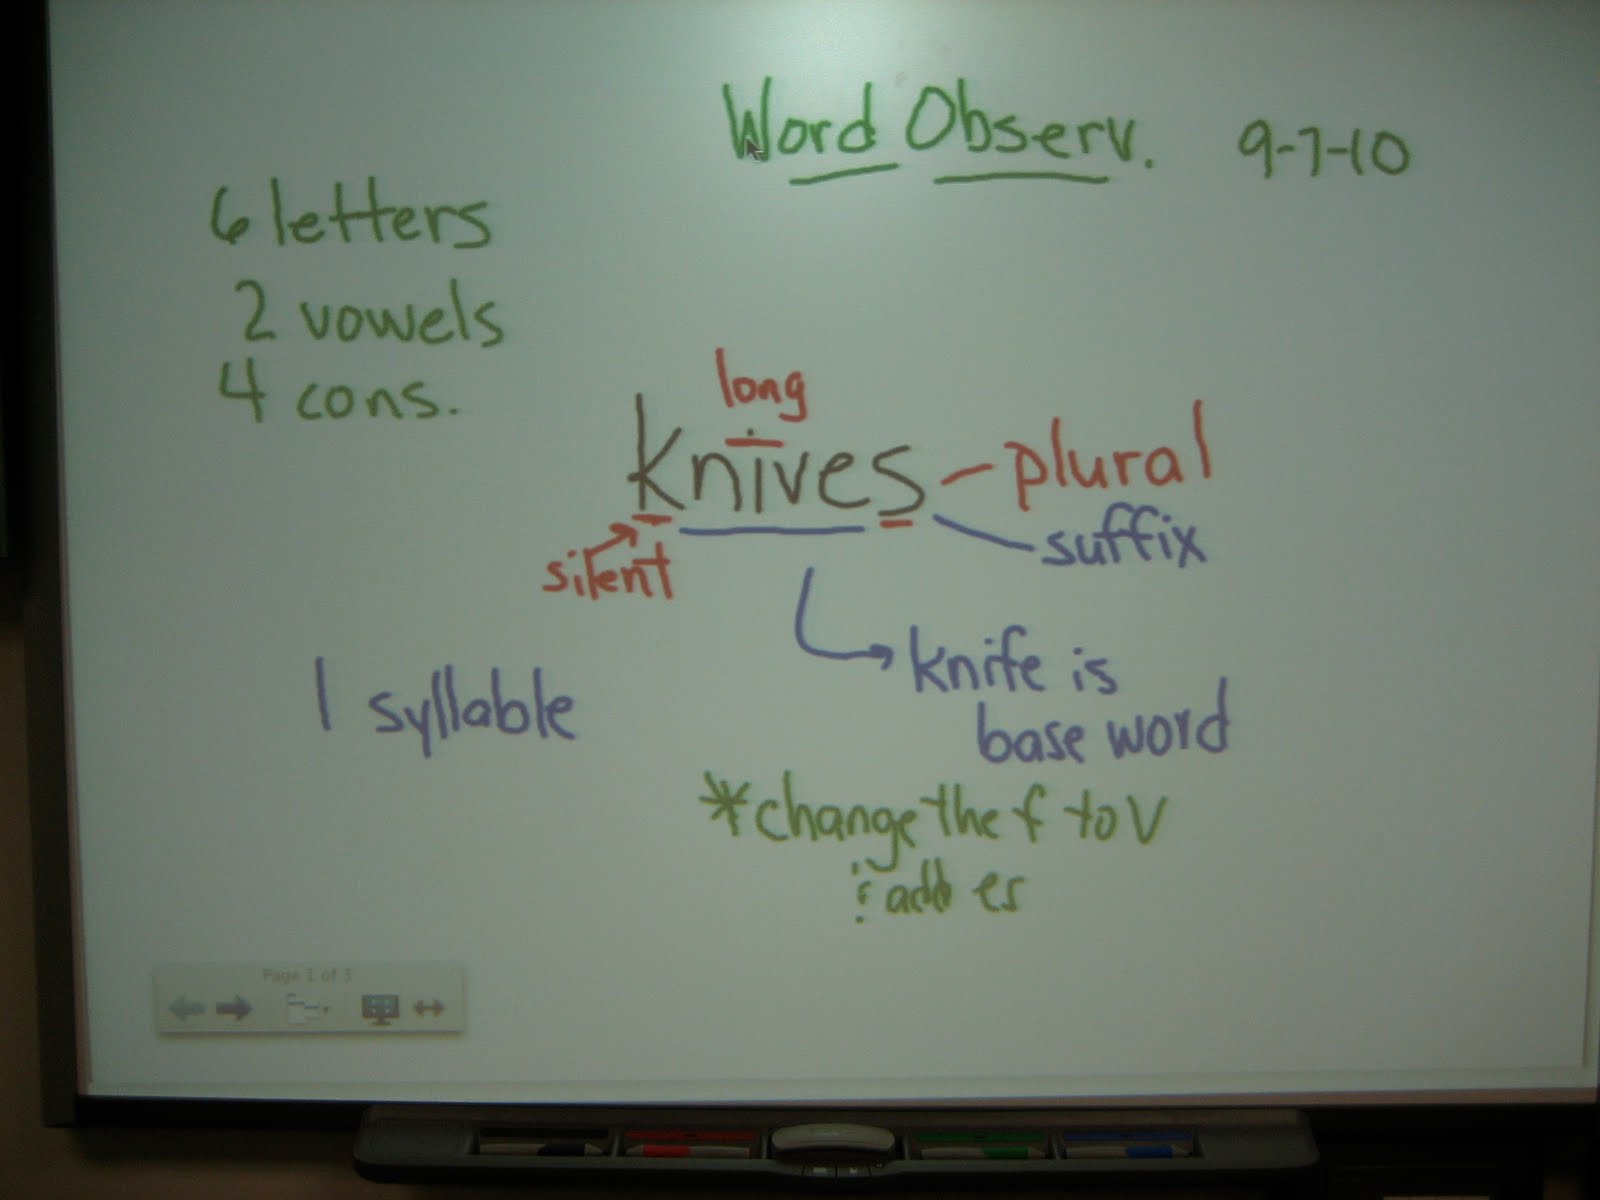 Word Observ. 9-7-10
6 letters
2 vowels
4 cons.
long
knives - plural
suffix
silent
knife is
base word
1 syllable
*change the f to v
& add es
Page 1 of 3